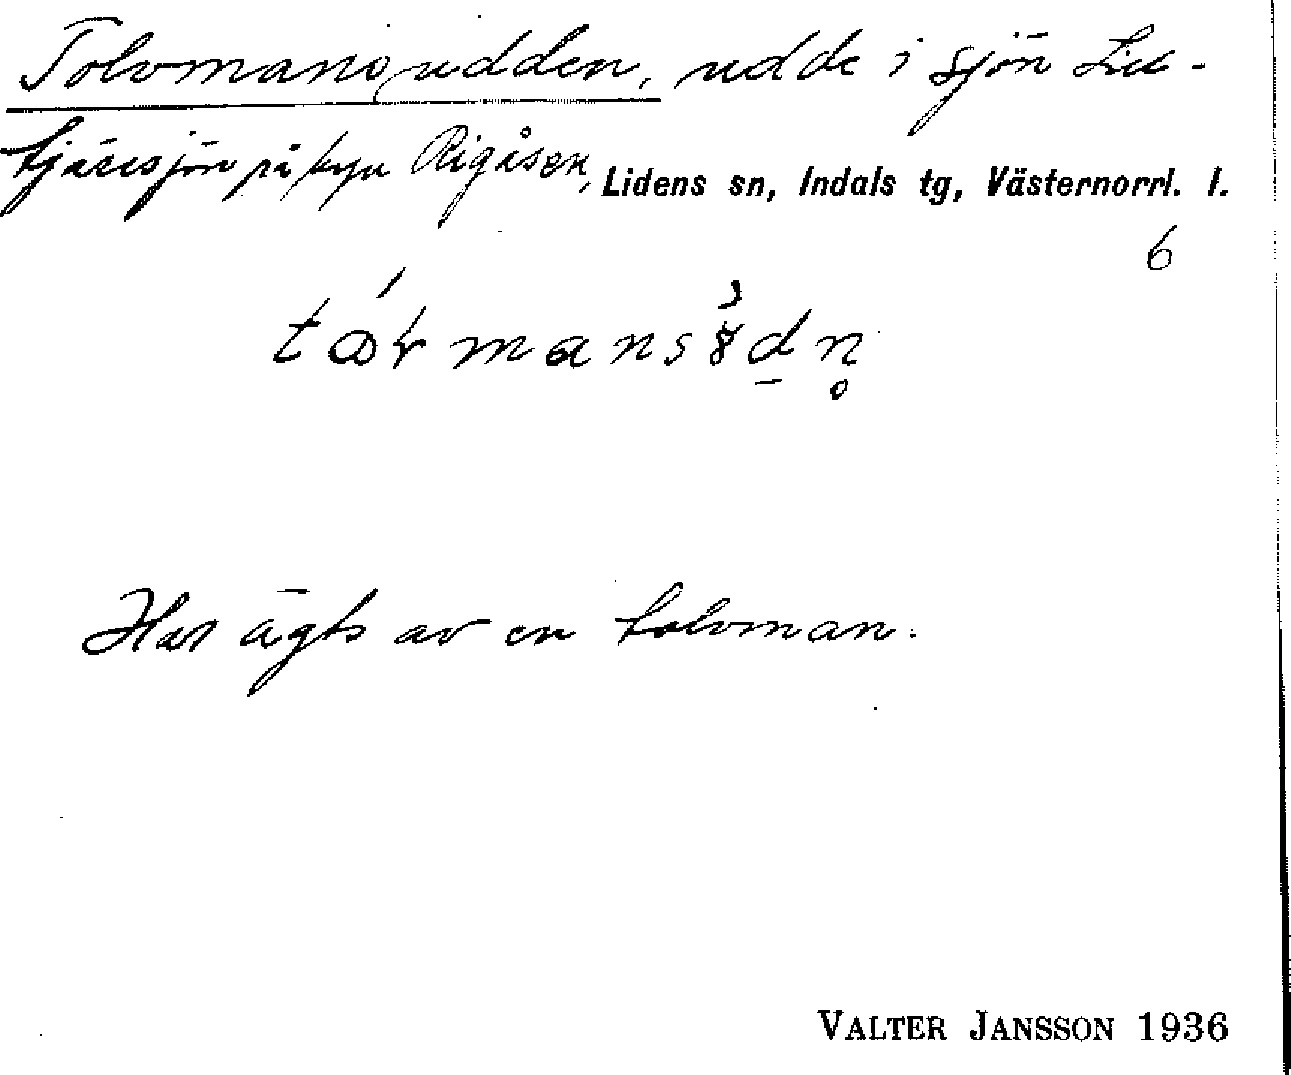 Tolvmansudden, udde i sjön Lill-
tjärnsjön på byn Rigåsen, Lidens sn, Indals tg, Västernorrl. l.
6
Har ägts av en tolvman.
VALTER JANSSON 1936